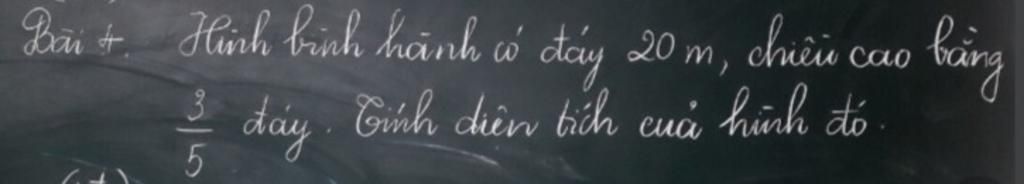 Bài 4. Hình bình hành có đáy 20 m, chiều cao bằng
3/5 đáy. Tính diện tích của hình đó.